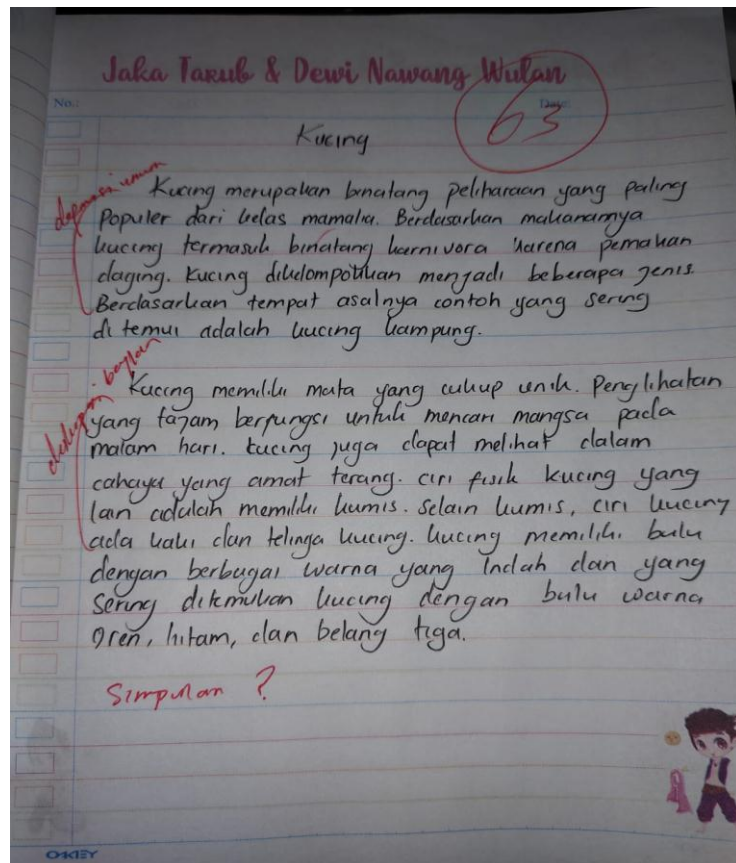 Jaka Tarub & Dewi Nawang Wulan
No.: Date:
63
Kucing
depinisi umum
Kucing merupakan binatang peliharaan yang paling
Populer dari kelas mamalia. Berdasarkan makanannya
kucing termasuk binatang karnivora karena pemakan
daging. Kucing dikelompokkan menjadi beberapa jenis.
Berdasarkan tempat asalnya contoh yang sering
di temui adalah kucing kampung.
bagian
Kucing memiliki mata yang cukup unik. Penglihatan
yang tajam berfungsi untuk mencari mangsa pada
malam hari. kucing juga dapat melihat dalam
cahaya yang amat terang. ciri fisik kucing yang
lain adalah memiliki kumis. Selain kumis, ciri kucing
ada kaki dan telinga kucing. kucing memiliki bulu
dengan berbagai warna yang Indah dan yang
sering ditemukan kucing dengan bulu warna
Oren, hitam, dan belang tiga.
Simpulan ?
OKEY